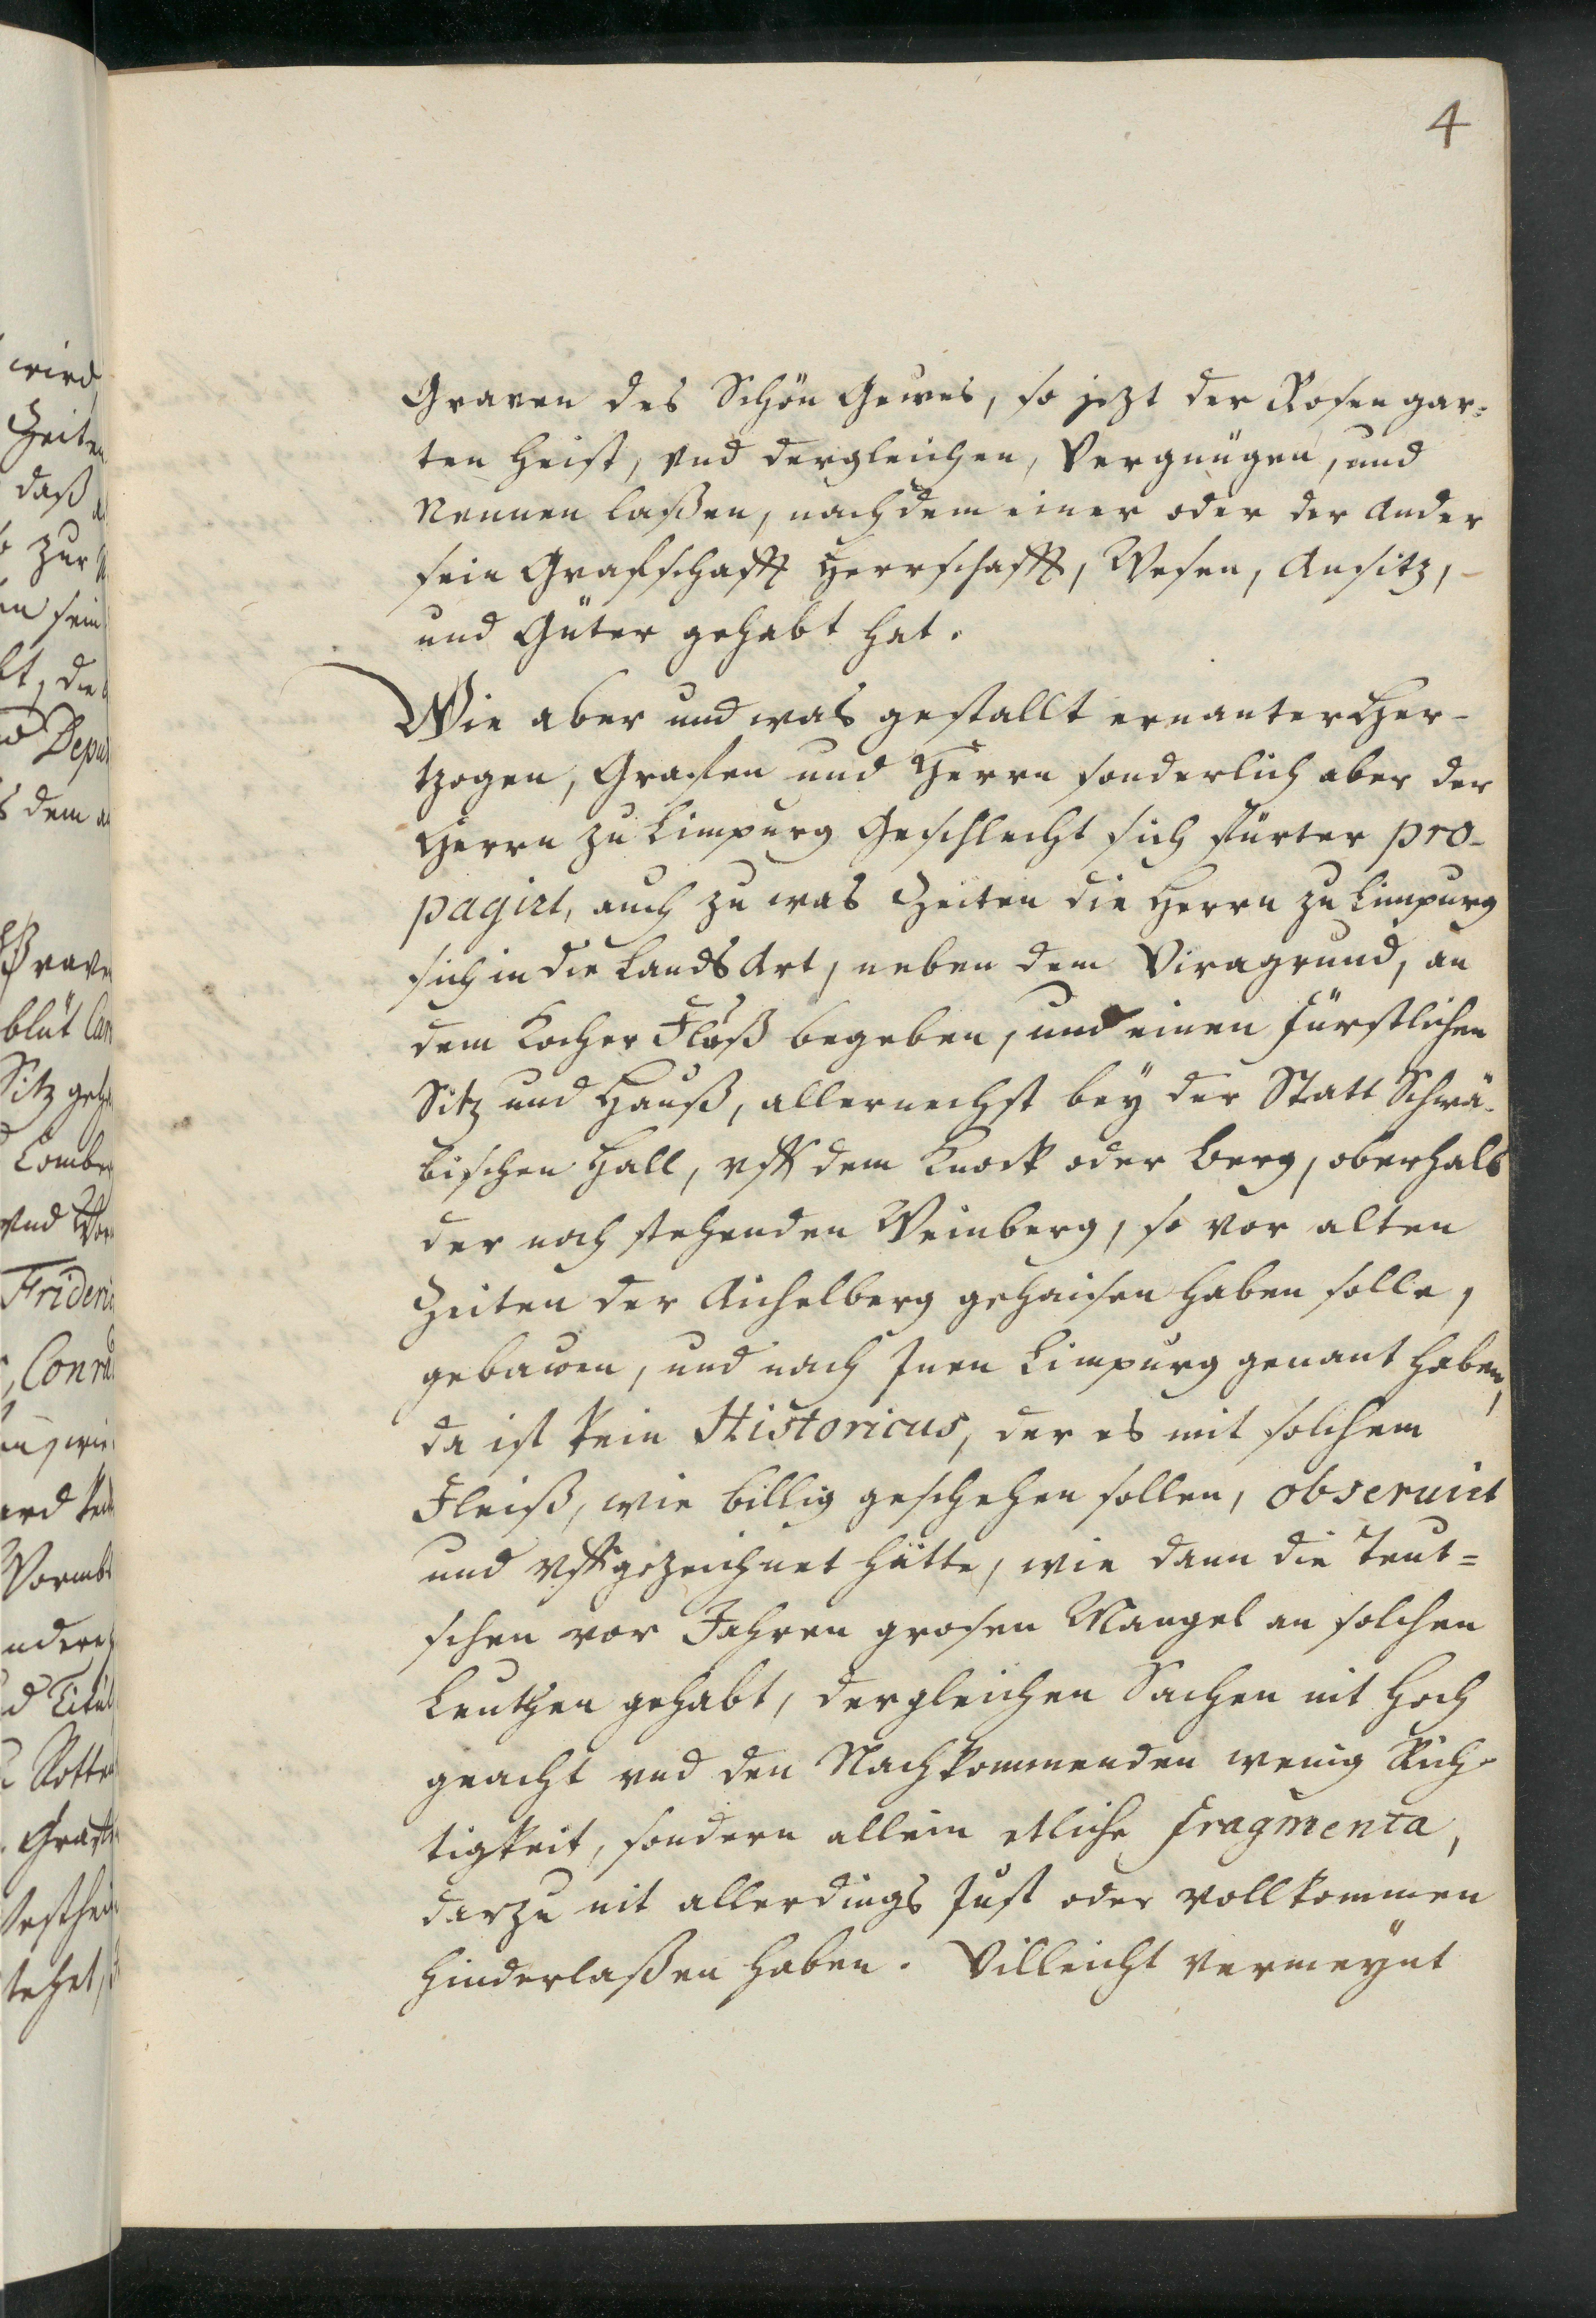 4
Graven des Schön Gewes, so jezt der Rosengar=
ten heist, vnd dergleichen, Vergnügen, und
Nennen laßen, nachdem einer oder der Ander
sein Grafschafft Herrschafft, Wesen, Ansitz,
und Güter gehabt hat.
Wie aber und was gestallt ernanter Her-
tzogen, Grafen und Herrn sonderlich aber der
Herrn zu Limpurg Geschlecht sich fürter pro-
pagirt, auch zu was Zeiten die Herrn zu Limpurg
sich in die Lands Art, neben dem Viragrund, an
dem Kocher Fluß begeben, und einen fürstlichen
Sitz und Hauß, allernechst bey der Statt Schwä-
bischen Hall, vff dem Knock oder Berg, oberhalb
der noch stehenden Weinberg, so vor alten
Zeiten der Aichelberg gehaisen haben solle,
gebawen, und nach Inen Limpurg genant haben,
da ist kein Historicus, der es mit solchem
Fleiß, wie billig geschehen sollen, obseruirt
und vffgezeichnet hätte, wie dann die Teut=
schen vor Jahren grosen Mangel an solchen
Leuthen gehabt, dergleichen Sachen nit hoch
geacht vnd den Nachkommenden wenig Rich-
tigkeit, sondern allein etliche fragmenta,
darzu nit allerdings Just oder vollkommen
hinderlaßen haben. Villeicht vermeynt